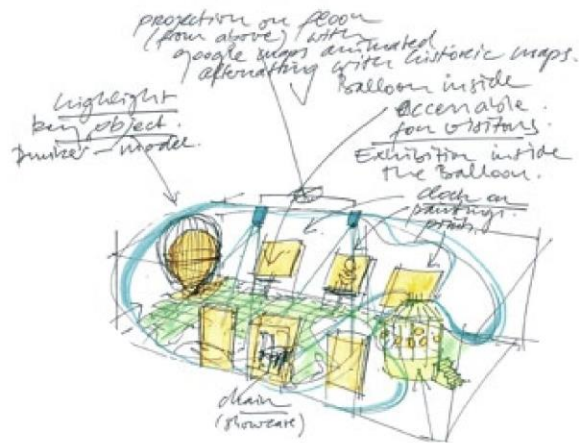 projection on floor
(from above) with
google maps animated
alternating with historic maps.
Balloon inside
accessable
for visitors.
Exhibition inside
the Balloon.
highlight
key object.
model.
paintings.
prints.
chain
(showcase)